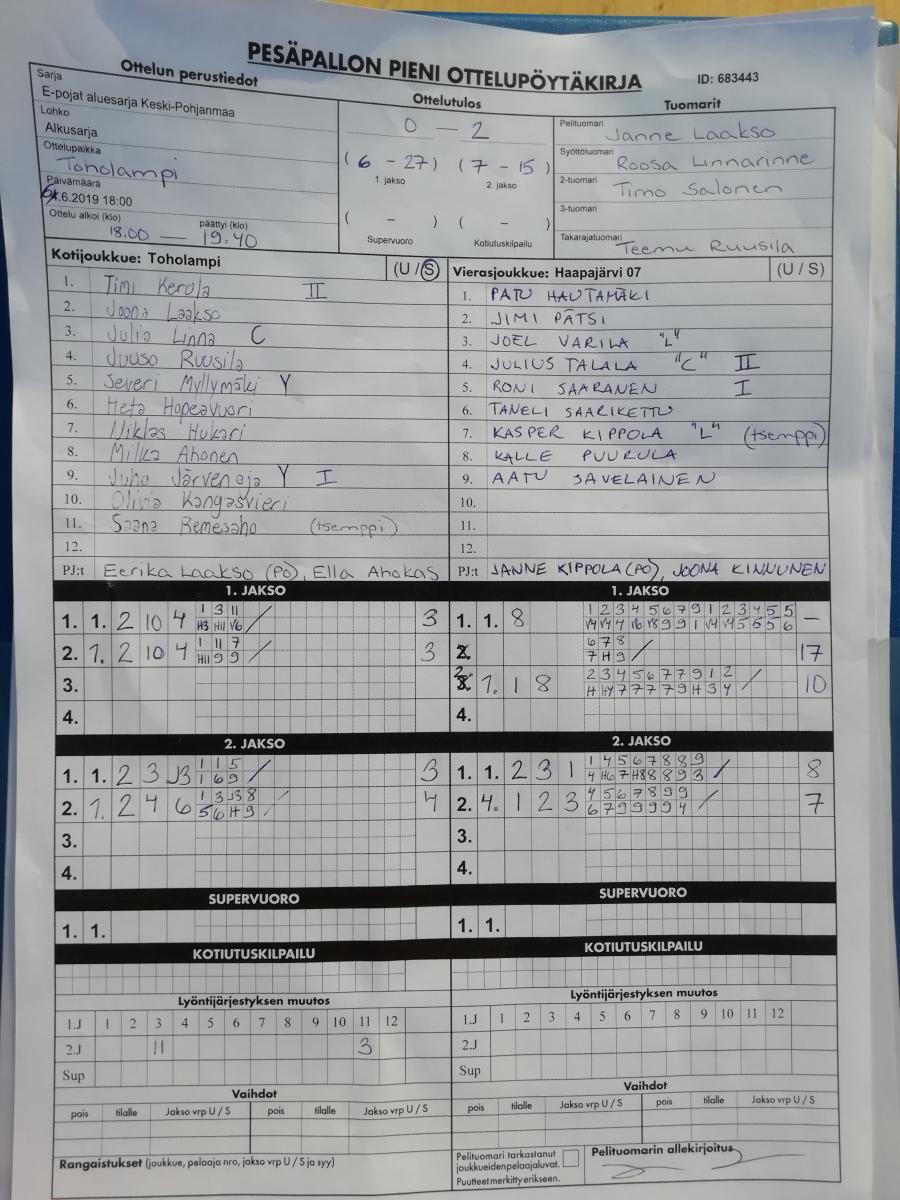 PESÄPALLON PIENI OTTELUPÖYTÄKIRJA
ID: 683443
Ottelun perustiedot
Sarja
E-pojat aluesarja Keski-Pohjanmaa
Lohko
Alkusarja
Ottelupaikka
Toholampi
Päivämäärä
.6.2019 18:00
Ottelu alkoi (klo) päättyi (klo)
18.00 — 19.40
Ottelutulos
0 - 2
(6 - 27) (7 - 15)
1. jakso 2. jakso
( - ) ( - )
Supervuoro Kotiutuskilpailu
Tuomarit
Pelituomari Janne Laakso
Syöttötuomari Roosa Linnarinne
2-tuomari Timo Salonen
3-tuomari
Takarajatuomari Teemu Ruusila
Kotijoukkue: Toholampi (U / S)
1. Timi Kerola II
2. Joona Laakso
3. Julia Linna C
4. Juuso Ruusila
5. Severi Myllymäki Y
6. Heta Hopeavuori
7. Niklas Hukari
8. Milka Ahonen
9. Juho Järvenoja Y I
10. Olivia Kangasvieri
11. Saana Remesaho (tsemppi)
12.
PJ:t Eerika Laakso (PO), Ella Ahokas
Vierasjoukkue: Haapajärvi 07 (U / S)
1. PATU HAUTAMÄKI
2. JIMI PÄTSI
3. JOEL VARILA "L"
4. JULIUS TALALA "C" II
5. RONI SAARANEN I
6. TANELI SAARIKETTU
7. KASPER KIPPOLA "L" (tsemppi)
8. KALLE PUURULA
9. AATU SAVELAINEN
10.
11.
12.
PJ:t JANNE KIPPOLA (PO), JOONA KINNUNEN
1. JAKSO
1. 1. 2 10 4 1 3 11 / 3
H3 H11 V6
2. 1. 2 10 4 1 11 7 / 3
H11 9 9
3.
4.
1. JAKSO
1. 1. 8 1 2 3 4 5 6 7 9 1 2 3 4 5 5 —
6 7 8 / 17
7 H 9
1. 1 8 2 3 4 5 6 7 7 9 1 2 / 10
4.
2. JAKSO
1. 1. 2 3 J3 1 1 5 / 3
1 6 9
2. 1. 2 4 6 1 3 J3 8 / 4
5 6 H 9
3.
4.
2. JAKSO
1. 1. 2 3 1 1 4 5 6 7 8 8 9 / 8
4 H6 7 H8 8 8 9 3
2. 4. 1 2 3 4 5 6 7 8 9 9 / 7
6 7 9 9 9 9 4
3.
4.
SUPERVUORO
1. 1.
SUPERVUORO
1. 1.
KOTIUTUSKILPAILU
KOTIUTUSKILPAILU
Lyöntijärjestyksen muutos
1.J 1 2 3 4 5 6 7 8 9 10 11 12
2.J 11 3
Sup
Lyöntijärjestyksen muutos
1.J 1 2 3 4 5 6 7 8 9 10 11 12
2.J
Sup
Vaihdot
pois tilalle Jakso vrp U / S pois tilalle Jakso vrp U / S
Vaihdot
pois tilalle Jakso vrp U / S pois tilalle Jakso vrp U / S
Rangaistukset (joukkue, pelaaja nro, jakso vrp U / S ja syy)
Pelituomari tarkastanut
joukkueidenpelaajaluvat.
Puutteet merkitty erikseen.
Pelituomarin allekirjoitus